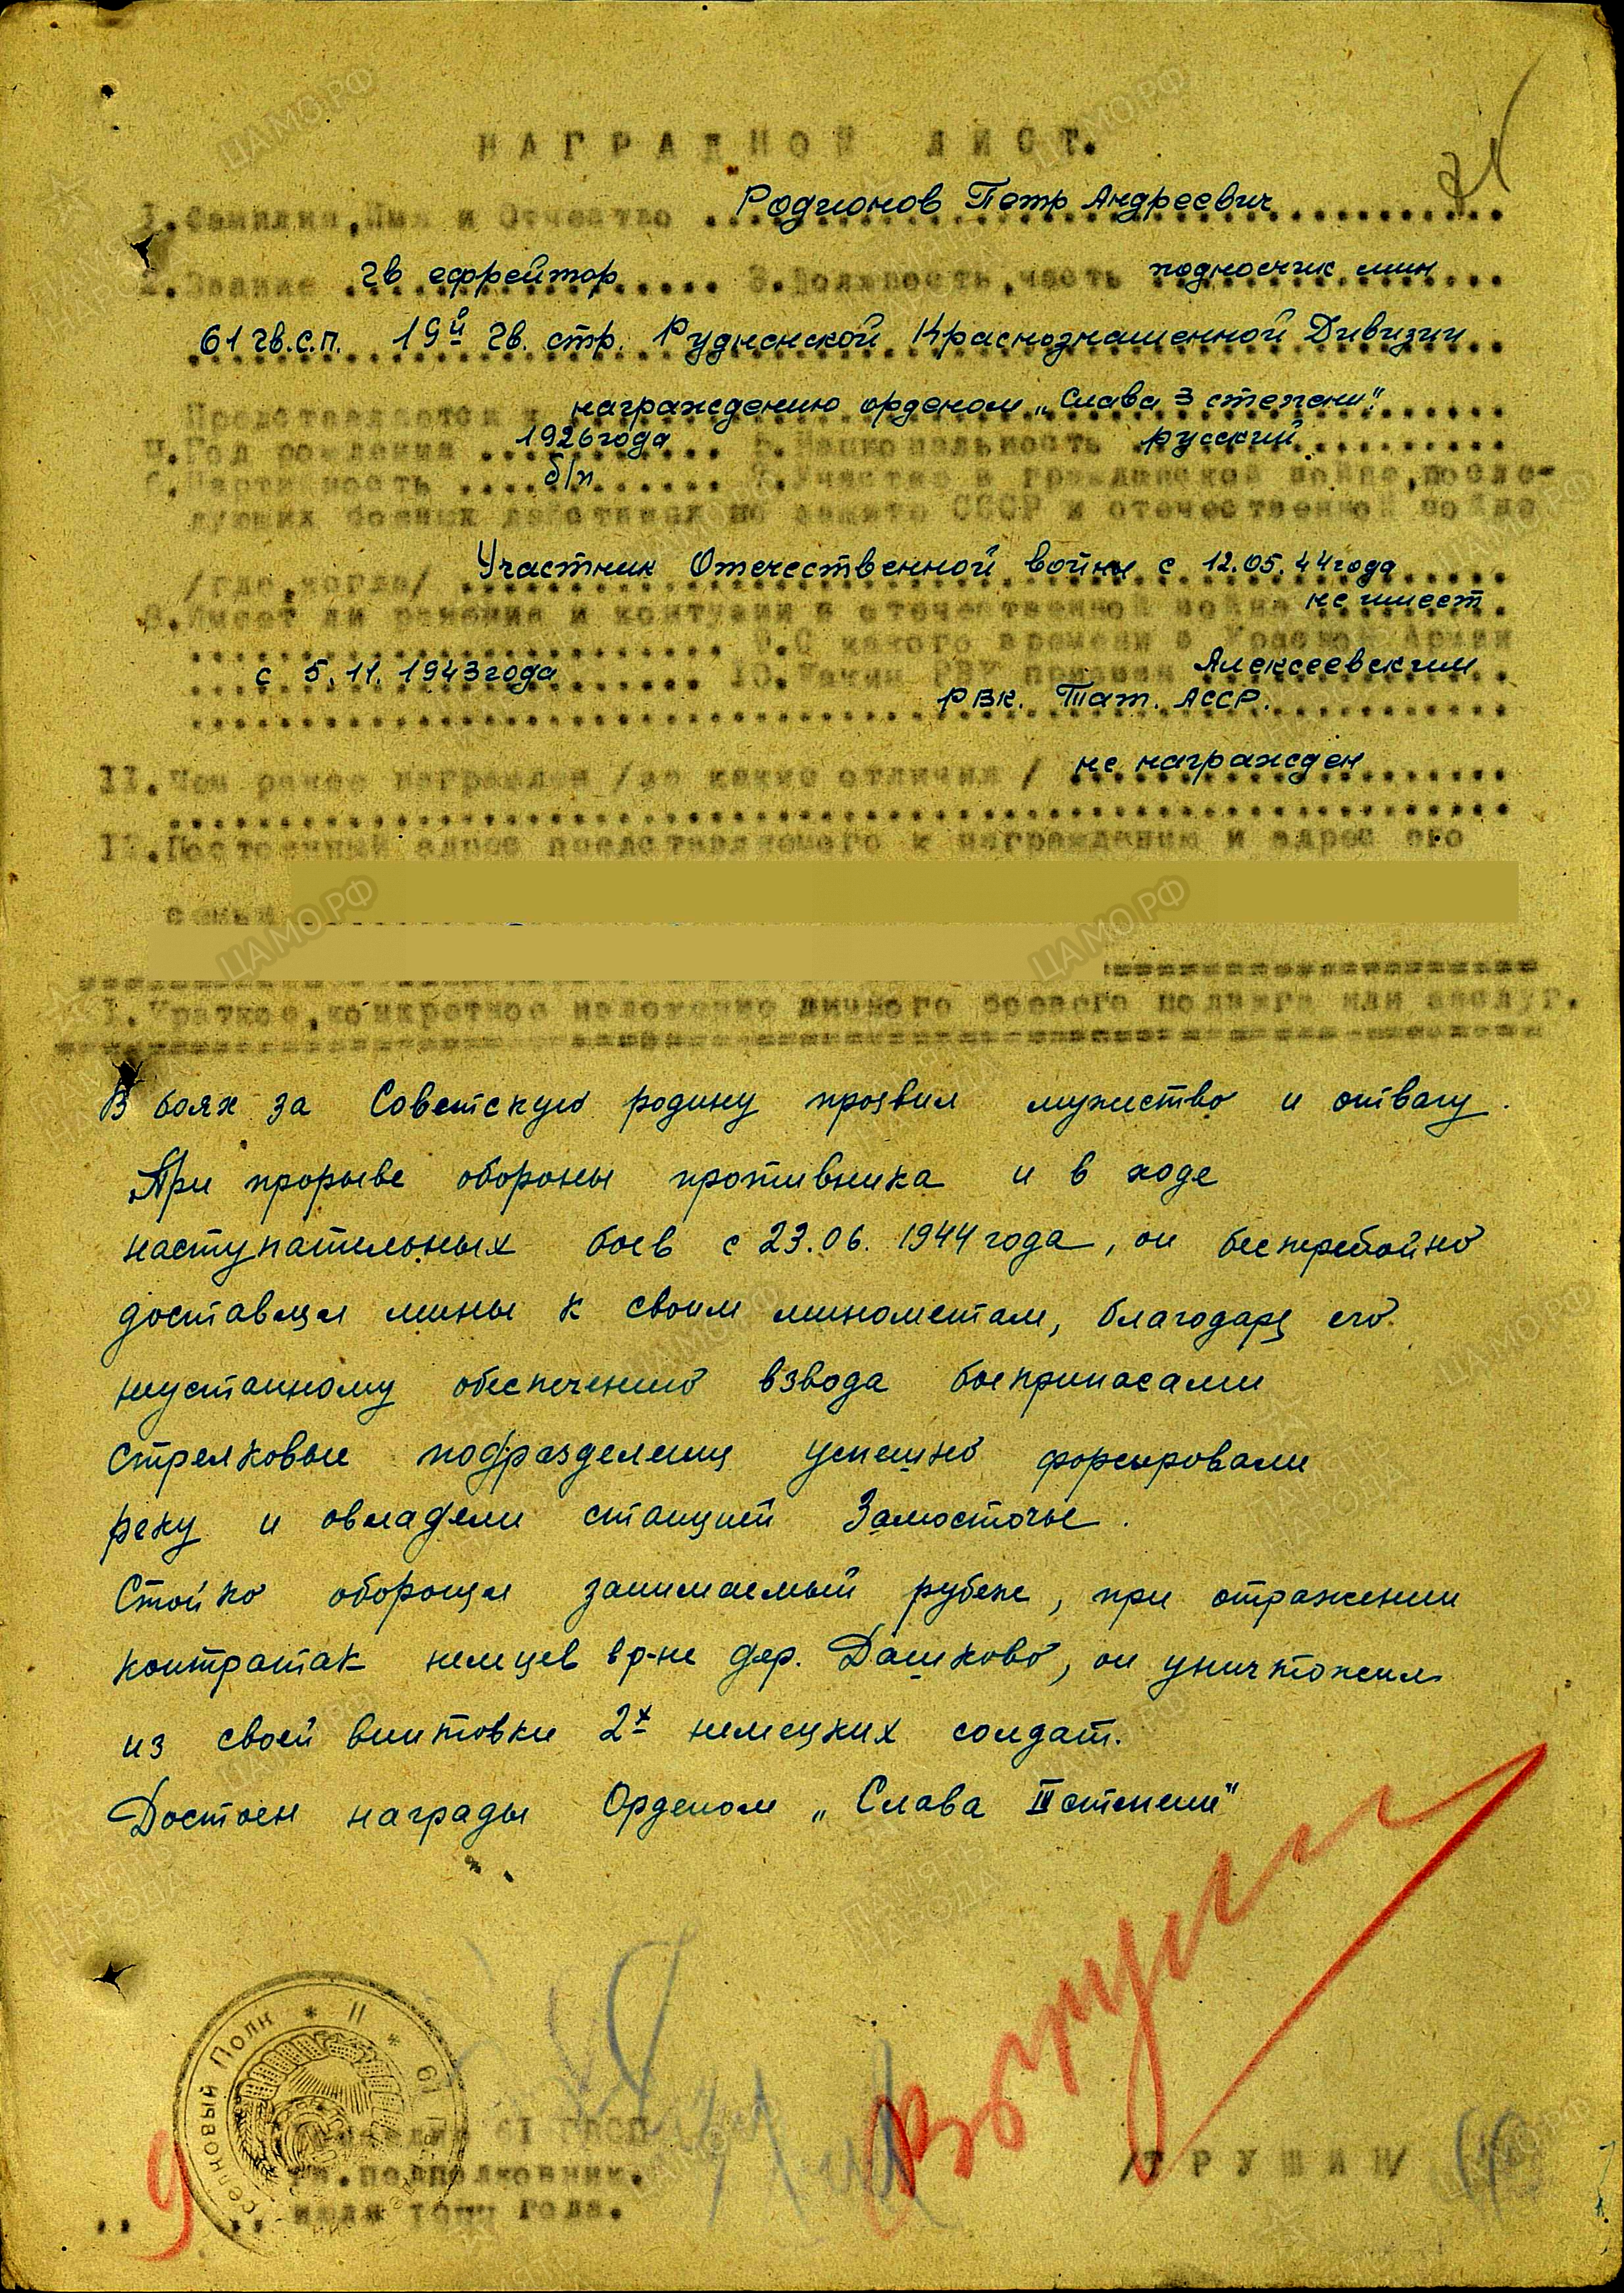 НАГРАДНОЙ ЛИСТ.
71
1. Фамилия, Имя и Отчество Родионов Петр Андреевич
2. Звание гв ефрейтор 3. Должность, часть подносчик мин
61 гв.с.п. 19й гв. стр. Рудненской Краснознаменной Дивизии
Представляется к награждению орденом „Слава 3 степени".
4. Год рождения 1926 года 5. Национальность русский
6. Партийность б/п 7. Участие в гражданской войне, после-
дующих боевых действиях по защите СССР и отечественной войне
/где, когда/ Участник Отечественной войны с 12.05.44 года
8. Имеет ли ранения и контузии в отечественной войне не имеет
9. С какого времени в Красной Армии
с 5.11.1943 года 10. Каким РВК призван Алексеевским
РВК. Тат. АССР.
11. Чем ранее награжден /за какие отличия/ не награжден
12. Постоянный адрес представляемого к награждению и адрес его
семьи
I. Краткое, конкретное изложение личного боевого подвига или заслуг.
В боях за Советскую родину проявил мужество и отвагу.
При прорыве обороны противника и в ходе
наступательных боев с 23.06.1944 года, он бесперебойно
доставлял мины к своим минометам, благодаря его
неустанному обеспечению взвода боеприпасами
стрелковые подразделения успешно форсировали
реку и овладели станцией Замосточье.
Стойко обороняя занимаемый рубеж, при отражении
контратак немцев в р-не дер. Дашково, он уничтожил
из своей винтовки 2х немецких солдат.
Достоен награды Орденом „Слава III степени"
Полк * II * 61
61 ГВСП
гв. подполковник. /ТРУШИН/
9 июля 1944 года.